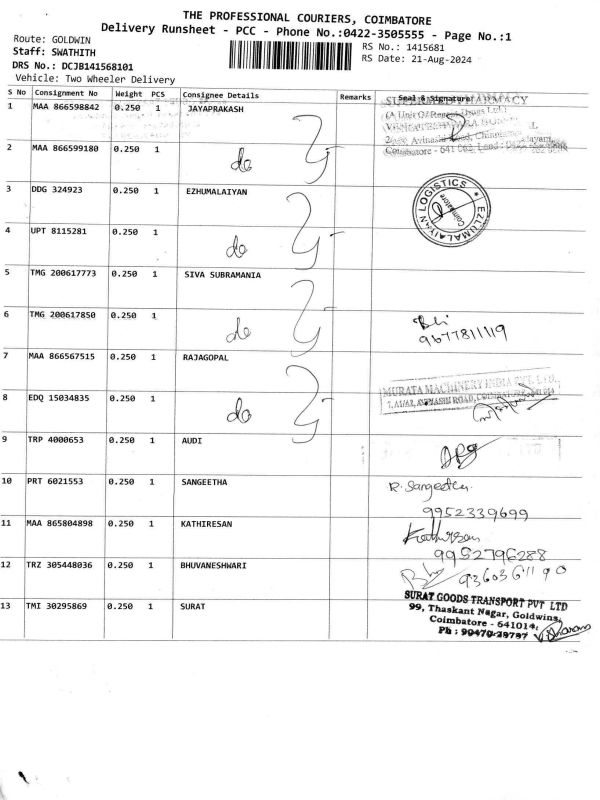 THE PROFESSIONAL COURIERS, COIMBATORE
Delivery Runsheet - PCC - Phone No.:0422-3505555 - Page No.:1
Route: GOLDWIN
Staff: SWATHITH
DRS No.: DCJB141568101
Vehicle: Two Wheeler Delivery
RS No.: 1415681
RS Date: 21-Aug-2024
S No Consignment No Weight PCS Consignee Details Remarks Seal & Signature
1 MAA 866598842 0.250 1 JAYAPRAKASH
2 MAA 866599180 0.250 1 do
3 DDG 324923 0.250 1 EZHUMALAIYAN
EZLUMALAIYAN LOGISTICS
Coimbatore
4 UPT 8115281 0.250 1 do
5 TMG 200617773 0.250 1 SIVA SUBRAMANIA
6 TMG 200617850 0.250 1 do
9677811119
7 MAA 866567515 0.250 1 RAJAGOPAL
MURATA MACHINERY INDIA PVT. LTD.,
8 EDQ 15034835 0.250 1 do
9 TRP 4000653 0.250 1 AUDI
10 PRT 6021553 0.250 1 SANGEETHA
R. Sangeetha
9952339699
11 MAA 865804898 0.250 1 KATHIRESAN
Kathiresan
9952796288
12 TRZ 305448036 0.250 1 BHUVANESHWARI
9360361190
13 TMI 30295869 0.250 1 SURAT
SURAT GOODS TRANSPORT PVT LTD
99, Thaskant Nagar, Goldwins,
Coimbatore - 641014.
Ph : 90470-29797